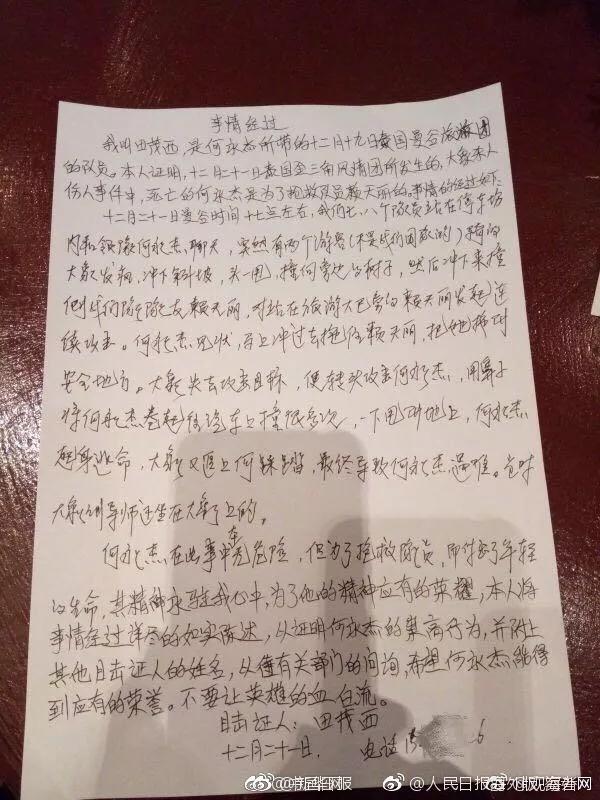 事情经过
我叫田茂西，是何永杰所带的十二月十九日泰国曼谷旅游团
的队员。本人证明，十二月二十一日泰国金三角风情园所发生的，大象杀人
伤人事件中，死亡的何永杰是为了抢救队员赖天丽的。事情的经过如下：
十二月二十一日曼谷时间十七点左右，我们七、八个队员站在停车场
内和领队何永杰聊天，突然有两个游客（不是我们团成员）骑的
大象发狂，冲下斜坡，头一甩，撞倒旁边的树子，然后冲下来撞
倒我们队队友赖天丽，对站在旅游大巴旁的赖天丽发起连
续攻击。何永杰见状，马上冲过去拖住赖天丽，把她拖到
安全地方。大象失去攻击目标，便转头攻击何永杰，用鼻子
将何永杰卷起往汽车上撞很多次，一下甩到地上，何永杰
起身逃命，大象又追上何踩踏，最终导致何永杰遇难。当时
大象训导师还坐在大象上的。
何永杰在此事中本无危险，但为了抢救队员，即付出了年轻
的生命，其精神永驻我心中，为了他的精神应有的荣耀，本人将
事情经过详尽的如实陈述，以证明何永杰的崇高行为，并附上
其他目击证人的姓名，以便有关部门的问询，希望何永杰能得
到应有的荣誉。不要让英雄的血白流。
目击证人：田茂西
十二月二十一日. 电话 6.
@人民日报海外版观海者网